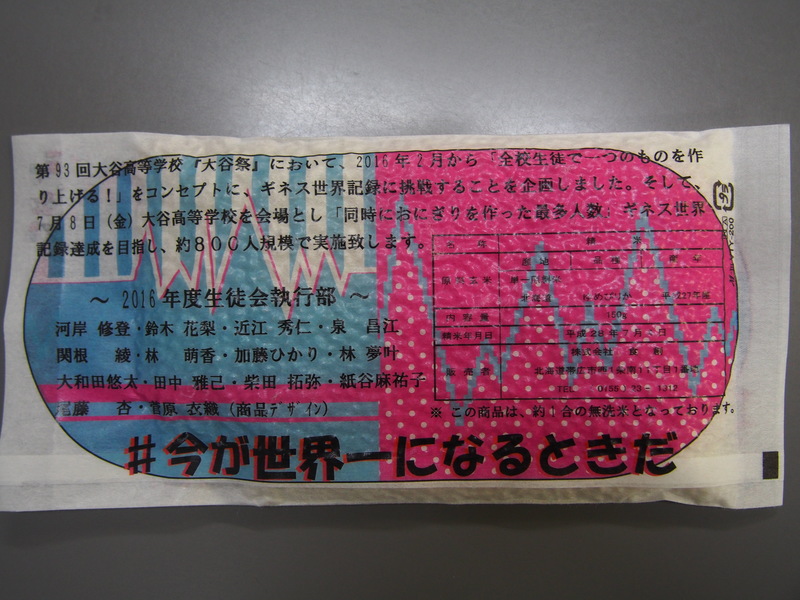 第93回大谷高等学校『大谷祭』において、2016年2月から「全校生徒で一つのものを作
り上げる！」をコンセプトに、ギネス世界記録に挑戦することを企画しました。そして、
7月8日（金）大谷高等学校を会場とし「同時におにぎりを作った最多人数」ギネス世界
記録達成を目指し、約800人規模で実施致します。
～ 2016年度生徒会執行部 ～
河岸 修登・鈴木 花梨・近江 秀仁・泉 昌江
関根 綾・林 萌香・加藤ひかり・林 夢叶
大和田悠太・田中 雅己・柴田 拓弥・紙谷麻祐子
尾藤 杏・菅原 衣織（商品デザイン）
名称 精米
原料玄米 産地 品種 産年
単一原料米
北海道 ゆめぴりか 平成27年産
内容量 150g
精米年月日 平成28年7月 日
販売者 株式会社 食創
北海道帯広市西1条南17丁目1番地
TEL
※ この商品は、約1合の無洗米となっております。
#今が世界一になるときだ